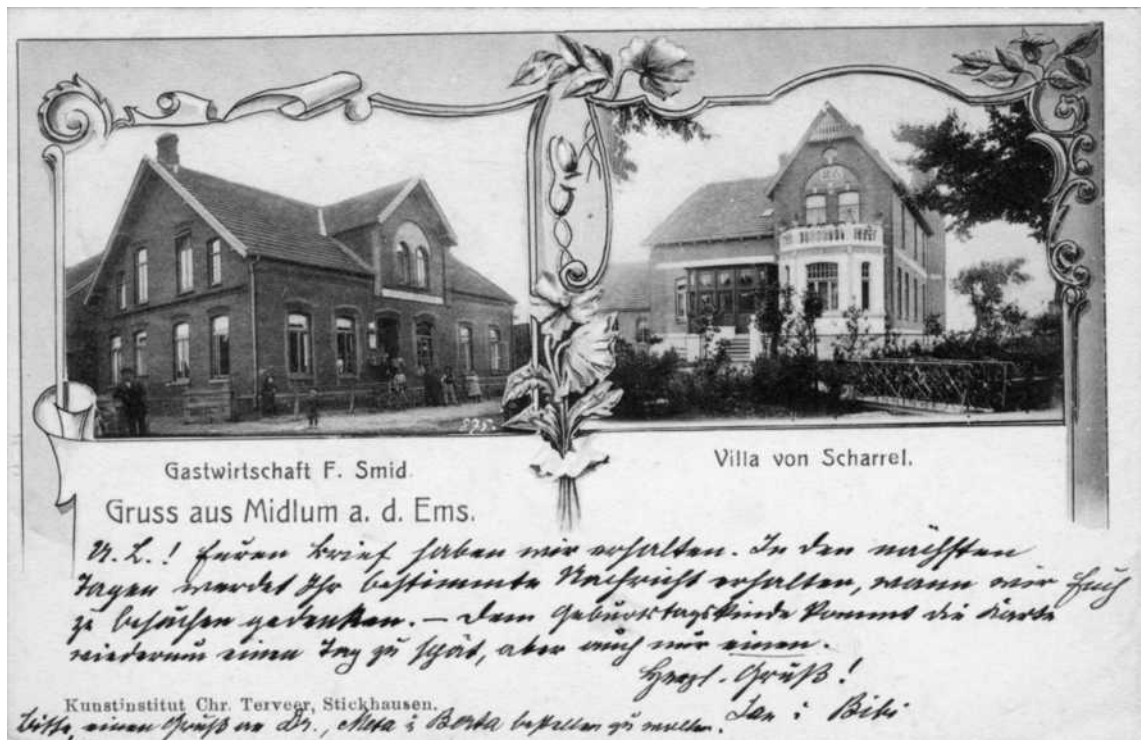 875.
Gastwirtschaft F. Smid.
Villa von Scharrel.
Gruss aus Midlum a. d. Ems.
M. L.! Euren Brief haben wir erhalten. In den nächsten
Tagen werdet Ihr bestimmte Nachricht erhalten, wann wir Euch
zu besuchen gedenken. – Dem Geburtstagskinde kommt die Karte
wiederum einen Tag zu spät, aber auch nur einen.
Herzl. Gruß!
Kunstinstitut Chr. Terveer, Stickhausen.
Bitte, einen Gruß an Br., Meta & Berta bestellen zu wollen.
Jan & Bibi